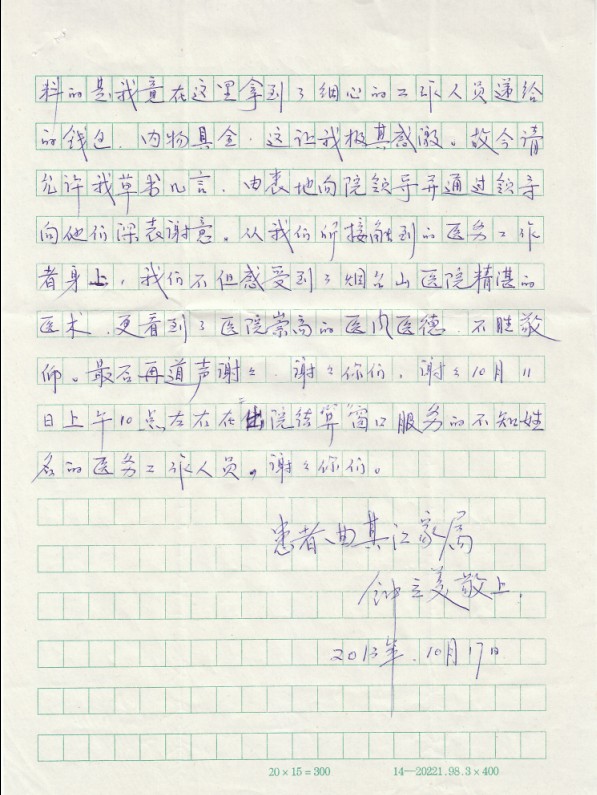 料的是我竟在这里拿到了细心的工作人员递给
的钱包，内物具全，这让我极其感激。故今请
允许我草书几言，由衷地向院领导并通过领导
向他们深表谢意。从我们所接触到的医务工作
者身上，我们不但感受到了烟台山医院精湛的
医术，更看到了医院崇高的医风医德，不胜敬
仰。最后再道声谢々，谢々你们，谢々10月11
日上午10点左右在出院结算窗口服务的不知姓
名的医务工作人员。谢々你们。
患者：曲其江家属
钟立美敬上.
2013年.10月17日
20×15=300 14—20221.98.3×400